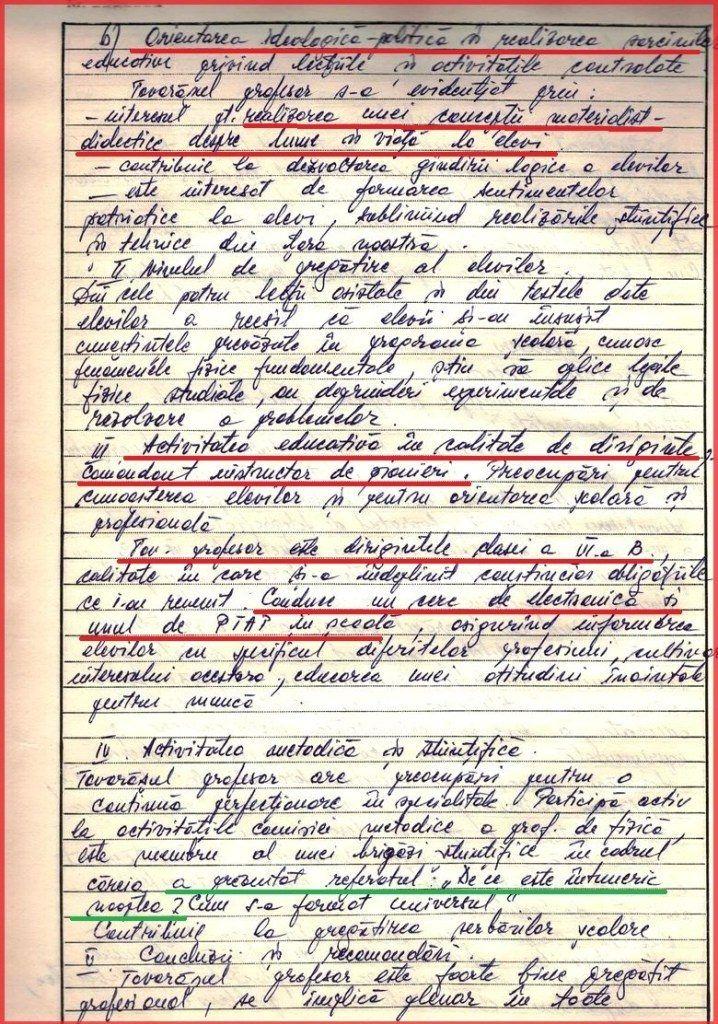 b) Orientarea ideologică-politică în realizarea sarcinilor
educative privind lecțiile și activitățile controlate.
Tovarășul profesor s-a evidențiat prin:
- interesul pt. realizarea unei concepții materialist-
didectice despre lume și viață la elevi.
- contribuie la dezvoltarea gîndirii logice a elevilor
- este interesat de formarea sentimentelor
patriotice la elevi, subliniind realizările științifice
și tehnice din țara noastră.
II Nivelul de pregătire al elevilor.
Din cele patru lecții asistate și din testele date
elevilor a reeșit că elevii și-au însușit
cunoștințele prevăzute în programa școlară, cunosc
fenomenele fizice fundamentale, știu să aplice legile
fizice studiate, au deprinderi experimentale și de
rezolvare a problemelor.
III Activitatea educativă în calitate de diriginte,
Comandant instructor de pionieri. Preocupări pentru
cunoașterea elevilor și pentru orientarea școlară și
profesională
Tov. profesor este dirigintele clasei a VI-a B.,
calitate în care și-a îndeplinit conștiincios obligațiile
ce i-au revenit. Conduce un cerc de electronică și
unul de PTAP în școală, asigurînd informarea
elevilor cu specificul diferitelor profesiuni, cultivarea
interesului acestora, educarea unei atitudini înaintate
pentru muncă
IV. Activitatea metodică și științifică.
Tovarășul profesor are preocupări pentru o
continuă perfecționare în specialitate. Participă activ
la activitățile comisiei metodice a prof. de fizică,
este membru al unei brigăzi științifice în cadrul
căreia a prezentat referatul: „De ce este întuneric
noaptea? Cum s-a format universul"
Contribuie la pregătirea serbărilor școlare.
V Concluzii și recomandări.
- Tovarășul profesor este foarte bine pregătit
profesional, se implică plenar în toate